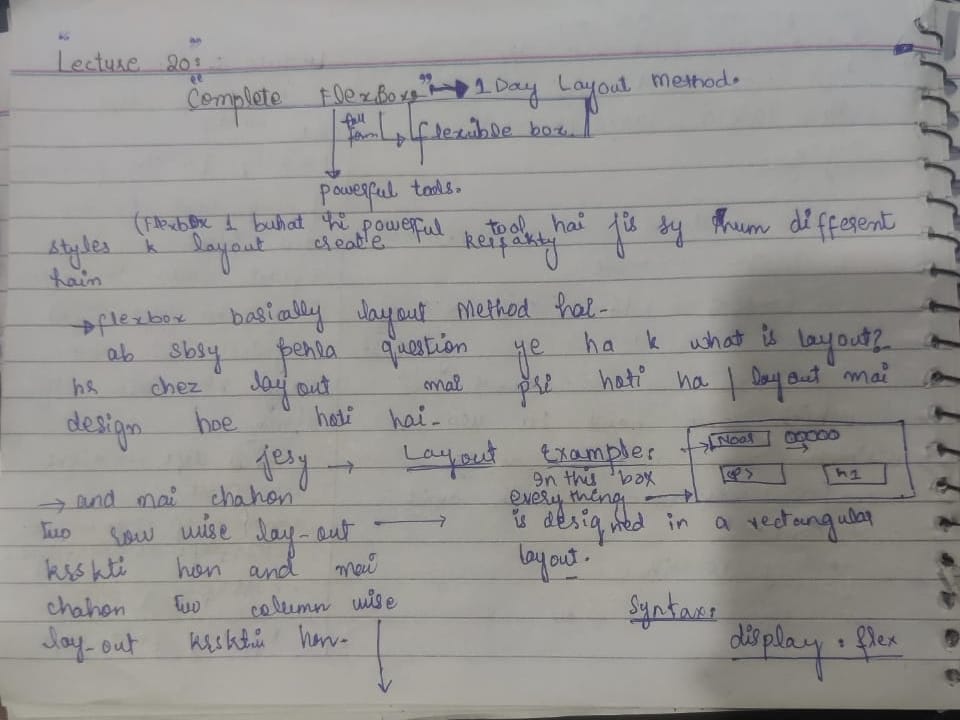 "Lecture 20:"
"Complete FlexBox:" → 1 Day Layout Method.
full form → flexibble box.
powerful tools.
(Flexbox 1 buhat hi powerful tool hai jis sy hum different
styles k layout create kersakty
hain
→ flexbox basically layout Method hai-
ab sbsy pehla question ye ha k what is layout?
hr chez layout mai pri hoti ha / layout mai
design hoe hoti hai-
jesy → Layout Example:
In this box
everything
is designed in a rectangular
layout.
<p>
h1
→ and mai chahon
tuo row wise lay-out
krskti hon and mai
chahon tuo column wise
lay-out krsktii hon-
Syntax:
display : flex